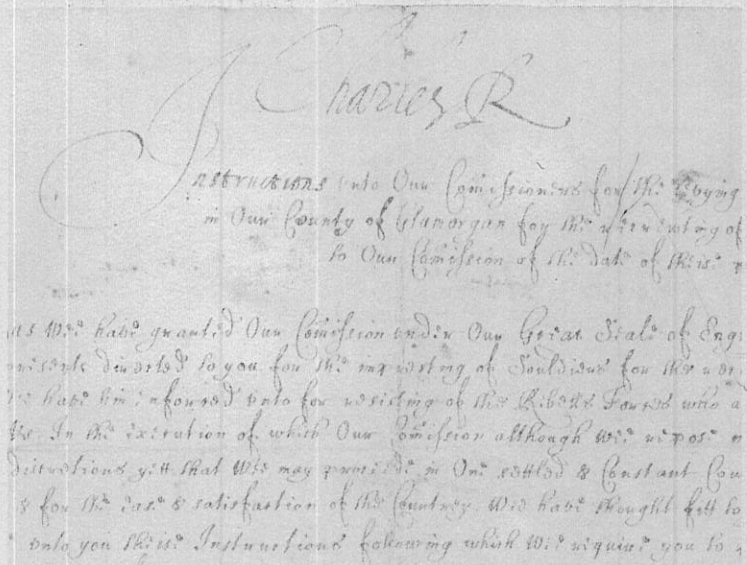 Charles R
Instructions vnto Our Comissioners for the Levying
in Our County of Glamorgan for the recruiting of
to Our Comission of the date of theise
as Wee have granted Our Comission under Our Great Seale of Eng
presents directed to you for the impresting of Souldiers for the
have bin inforced vnto for resisting of the Rebells Forces who a
In the execution of which Our Comission although Wee repose
discretions yett that Wee may proceede in One settled & Constant Cou
& for the ease & satisfaction of the Countrey Wee have thought fitt to
vnto you theise Instructions following which Wee require you to